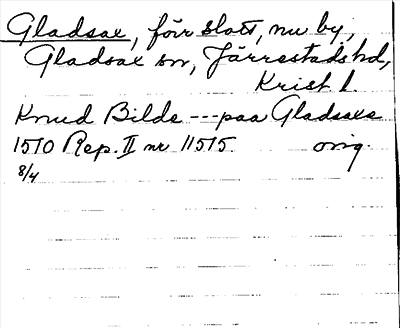 Gladsax, förr slott, nu by,
Gladsax sn, Järrestads hd,
Krist l.
Knud Bilde --- paa Gladsaxe
1510 Rep. II nr 11515. orig.
8/4